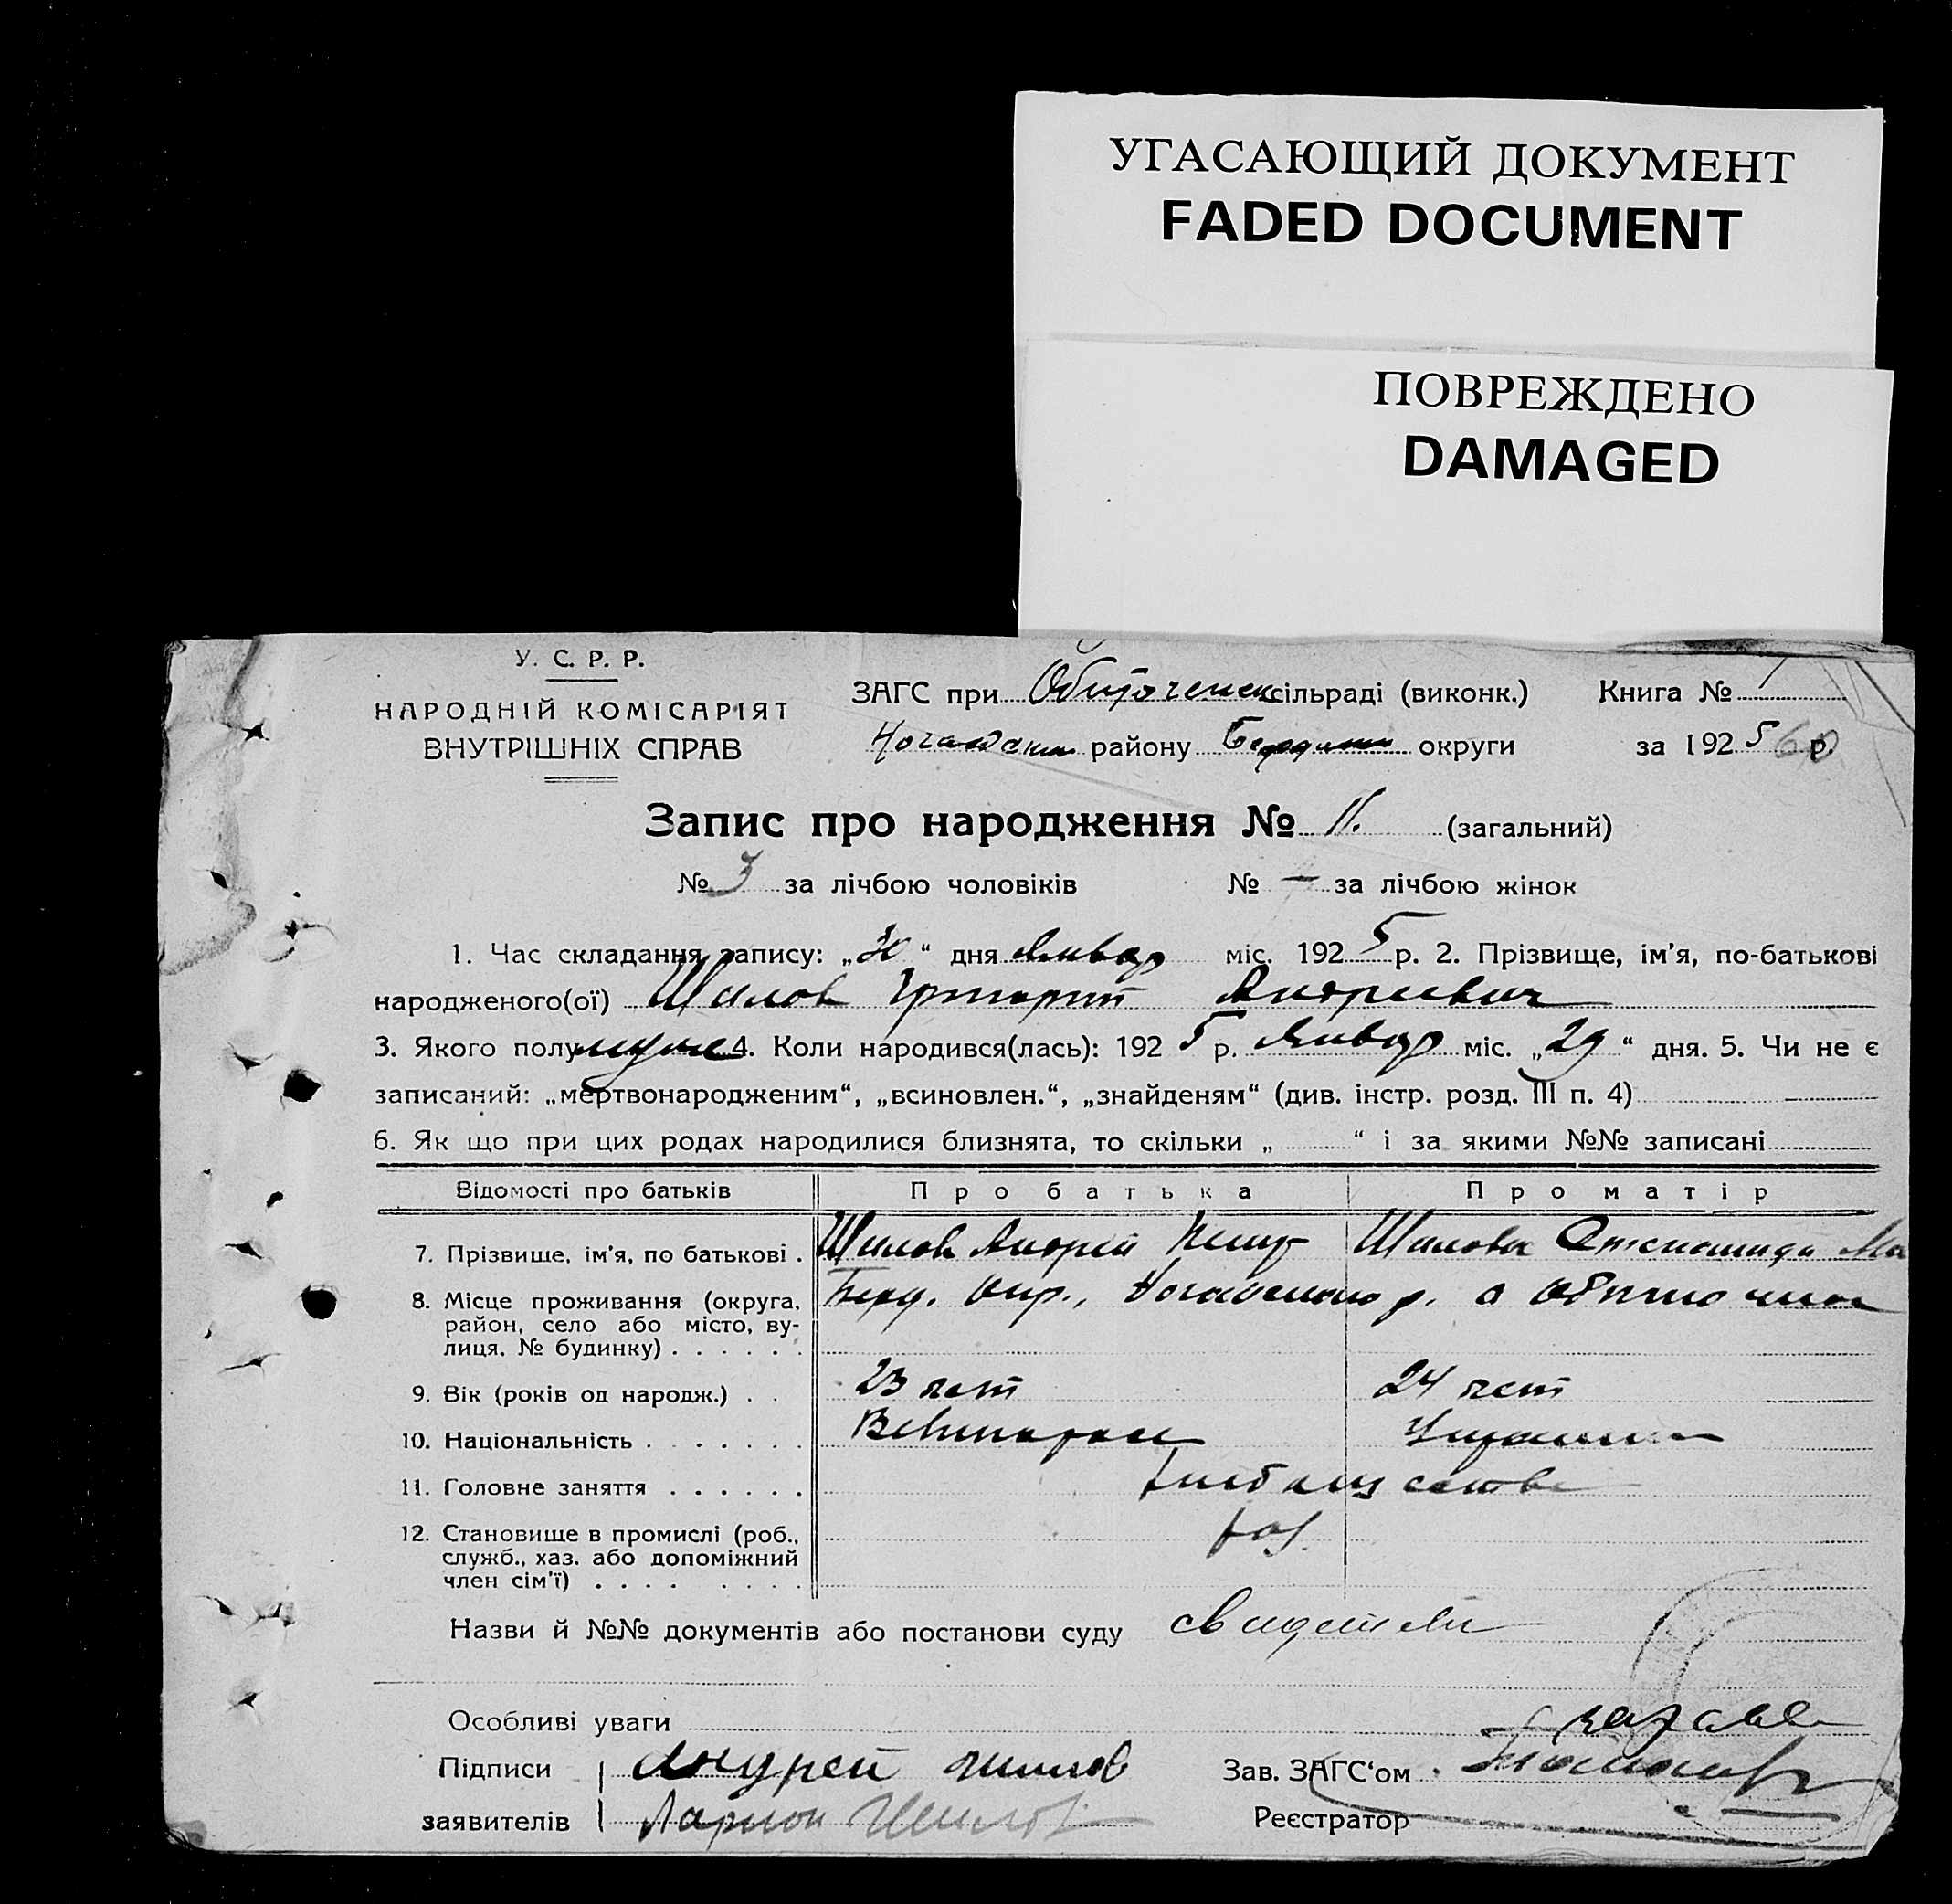 УГАСАЮЩИЙ ДОКУМЕНТ
FADED DOCUMENT
ПОВРЕЖДЕНО
DAMAGED
У. С. Р. Р.
НАРОДНІЙ КОМІСАРІЯТ
ВНУТРІШНІХ СПРАВ
ЗАГС при сільраді (виконк.) Книга № 1
району округи за 1925 р.
Запис про народження № 11. (загальний)
№ 3 за лічбою чоловіків № — за лічбою жінок
1. Час складання запису: „30“ дня Январ міс. 1925 р. 2. Прізвище, ім’я, по-батькові
народженого(ої) Шилов Григорий Андриевич
3. Якого полу муж 4. Коли народився(лась): 1925 р. Январ міс. „29“ дня. 5. Чи не є
записаний: „мертвонародженим“, „всиновлен.“, „знайденям“ (див. інстр. розд. III п. 4)
6. Як що при цих родах народилися близнята, то скільки „ “ і за якими №№ записані
Відомості про батьків Про батька Про матір
7. Прізвище, ім’я, по батькові . Шилов Андрей Шилова
8. Місце проживання (округа, Берд. окр., р. с
район, село або місто, ву-
лиця, № будинку) . . . . . .
9. Вік (років од народж.) . . 23 лет 24 лет
10. Національність . . . . . . .
11. Головне заняття . . . . . .
12. Становище в промислі (роб.,
служб., хаз. або допоміжний
член сім’ї) . . . . . . . .
Назви й №№ документів або постанови суду свидетели
Особливі уваги
Підписи Андрей Шилов Зав. ЗАГС‘ом
заявителів Ларион Шилов Реєстратор